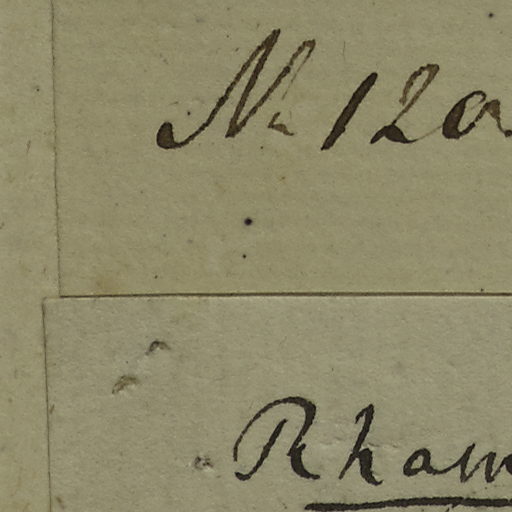 No 120
Rham